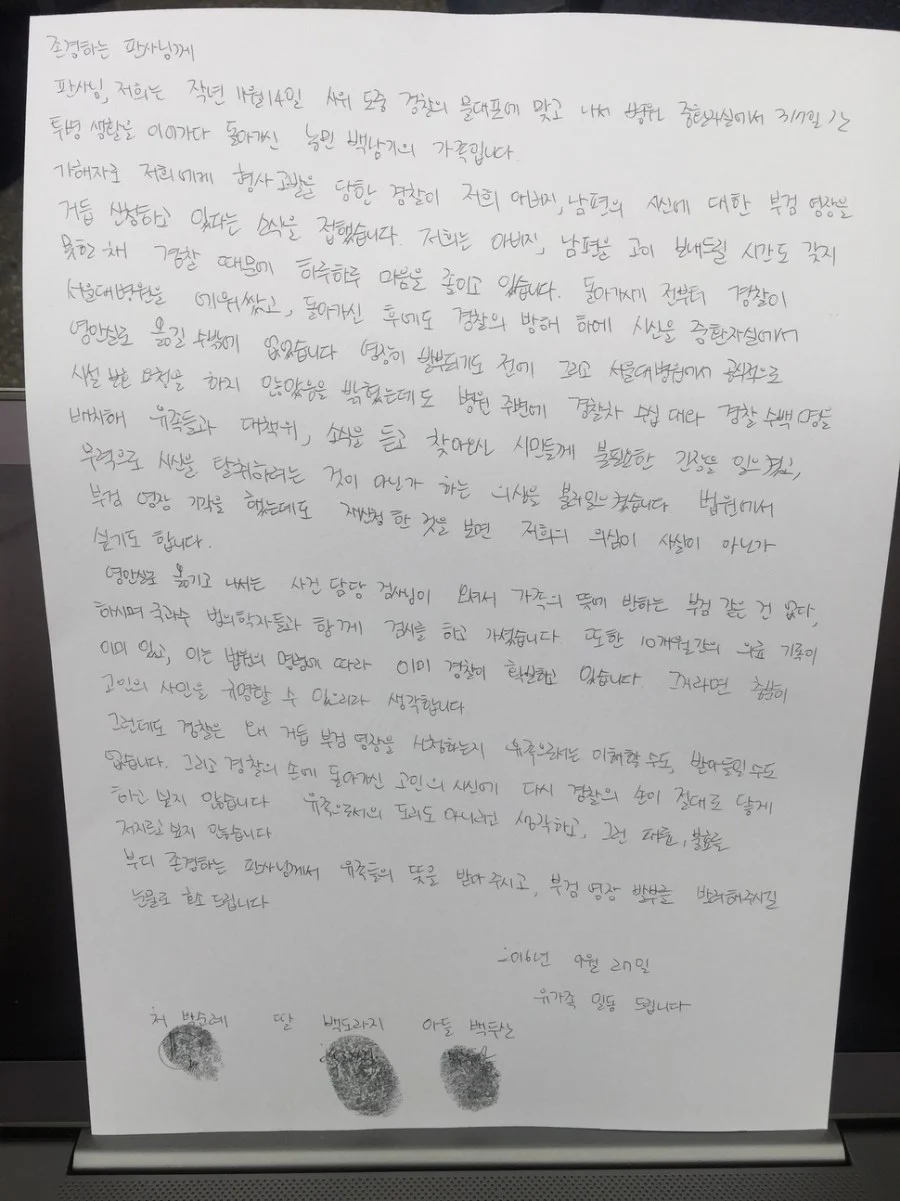 존경하는 판사님께
판사님, 저희는 작년 11월14일 시위 도중 경찰의 물대포에 맞고 나서 병원 중환자실에서 317일 간
투병 생활을 이어가다 돌아가신 농민 백남기의 가족입니다.
가해자로 저희에게 형사고발을 당한 경찰이 저희 아버지, 남편의 시신에 대한 부검 영장을
거듭 신청하고 있다는 소식을 접했습니다. 저희는 아버지, 남편을 고이 보내드릴 시간도 갖지
못한 채 경찰 때문에 하루하루 마음을 졸이고 있습니다. 돌아가시기 전부터 경찰이
서울대병원을 에워쌌고, 돌아가신 후에도 경찰의 방해 하에 시신을 중환자실에서
영안실로 옮길 수밖에 없었습니다 영장이 발부되기도 전에 그리고 서울대병원에서 공식적으로
시설 보호 요청을 하지 않았음을 밝혔는데도 병원 주변에 경찰차 수십 대와 경찰 수백 명을
배치해 유족들과 대책위, 소식을 듣고 찾아오신 시민들께 불필요한 긴장을 일으켰고,
무력으로 시신을 탈취하려는 것이 아닌가 하는 의심을 불러일으켰습니다 법원에서
부검 영장 기각을 했는데도 재신청 한 것을 보면 저희의 의심이 사실이 아닌가
싶기도 합니다.
영안실로 옮기고 나서는 사건 담당 검사님이 오셔서 가족의 뜻에 반하는 부검 같은 건 없다,
하시며 국과수 법의학자들과 함께 검시를 하고 가셨습니다. 또한 10개월간의 의료 기록이
이미 있고, 이는 법원의 명령에 따라 이미 경찰이 확보하고 있습니다 그거라면 충분히
고인의 사인을 규명할 수 있으리라 생각합니다
그런데도 경찰은 왜 거듭 부검 영장을 신청하는지 유족으로서는 이해할 수도, 받아들일 수도
없습니다. 그리고 경찰의 손에 돌아가신 고인의 시신에 다시 경찰의 손이 절대로 닿게
하고 싶지 않습니다 유족으로서의 도리도 아니라고 생각하고, 그런 패륜, 불효를
저지르고 싶지 않습니다
부디 존경하는 판사님께서 유족들의 뜻을 받아 주시고, 부검 영장 발부를 반려해주시길
눈물로 호소 드립니다
2016년 9월 27일
유가족 일동 드립니다
처 박순례 딸 백도라지 아들 백두산